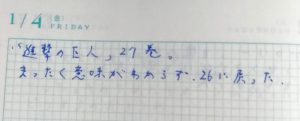 1/4 (金)
FRIDAY
"進撃の巨人, 27巻。
まったく意味がわからず、26に戻った.